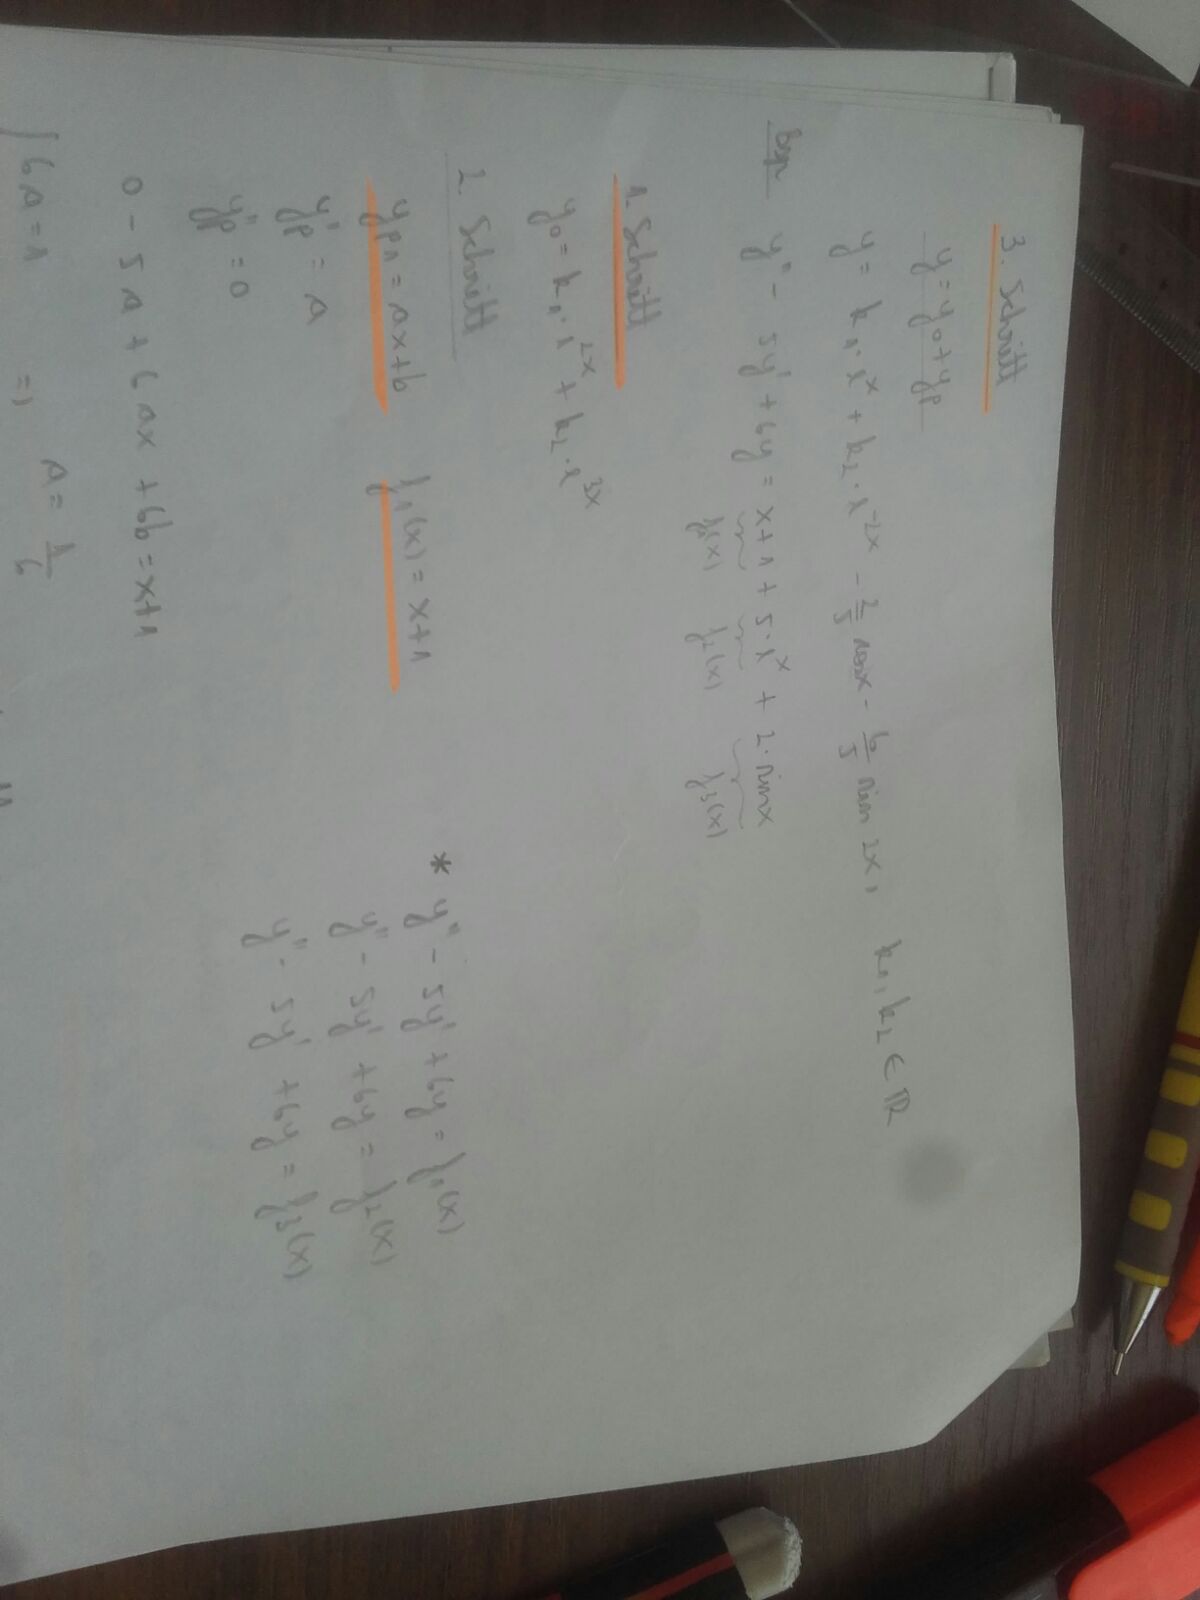 3. Schritt
y = y₀ + yₚ
y = k₁ · e^x + k₂ · e^-2x - 2/5 cos x - 6/5 sin 2x, k₁, k₂ ∈ ℝ
Bsp y'' - 5y' + 6y = x+1 + 5·e^x + 2·sinx
f₁(x) f₂(x) f₃(x)
1. Schritt
y₀ = k₁ · e^2x + k₂ · e^3x
2. Schritt
yₚ₁ = ax+b f₁(x) = x+1
yₚ' = a
yₚ'' = 0
* y'' - 5y' + 6y = f₁(x)
y'' - 5y' + 6y = f₂(x)
y'' - 5y' + 6y = f₃(x)
0 - 5a + 6ax + 6b = x+1
6a = 1 => a = 1/6